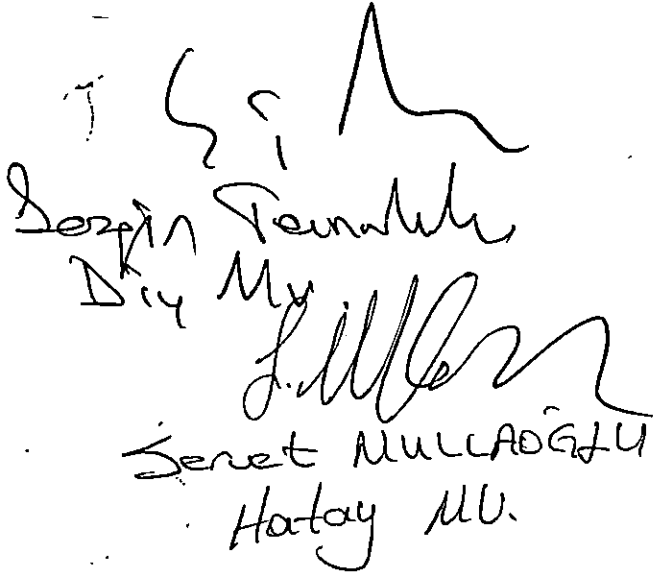 Sezgin Tanrıkulu
Diy Mv.
Servet MULLAOĞLU
Hatay MV.